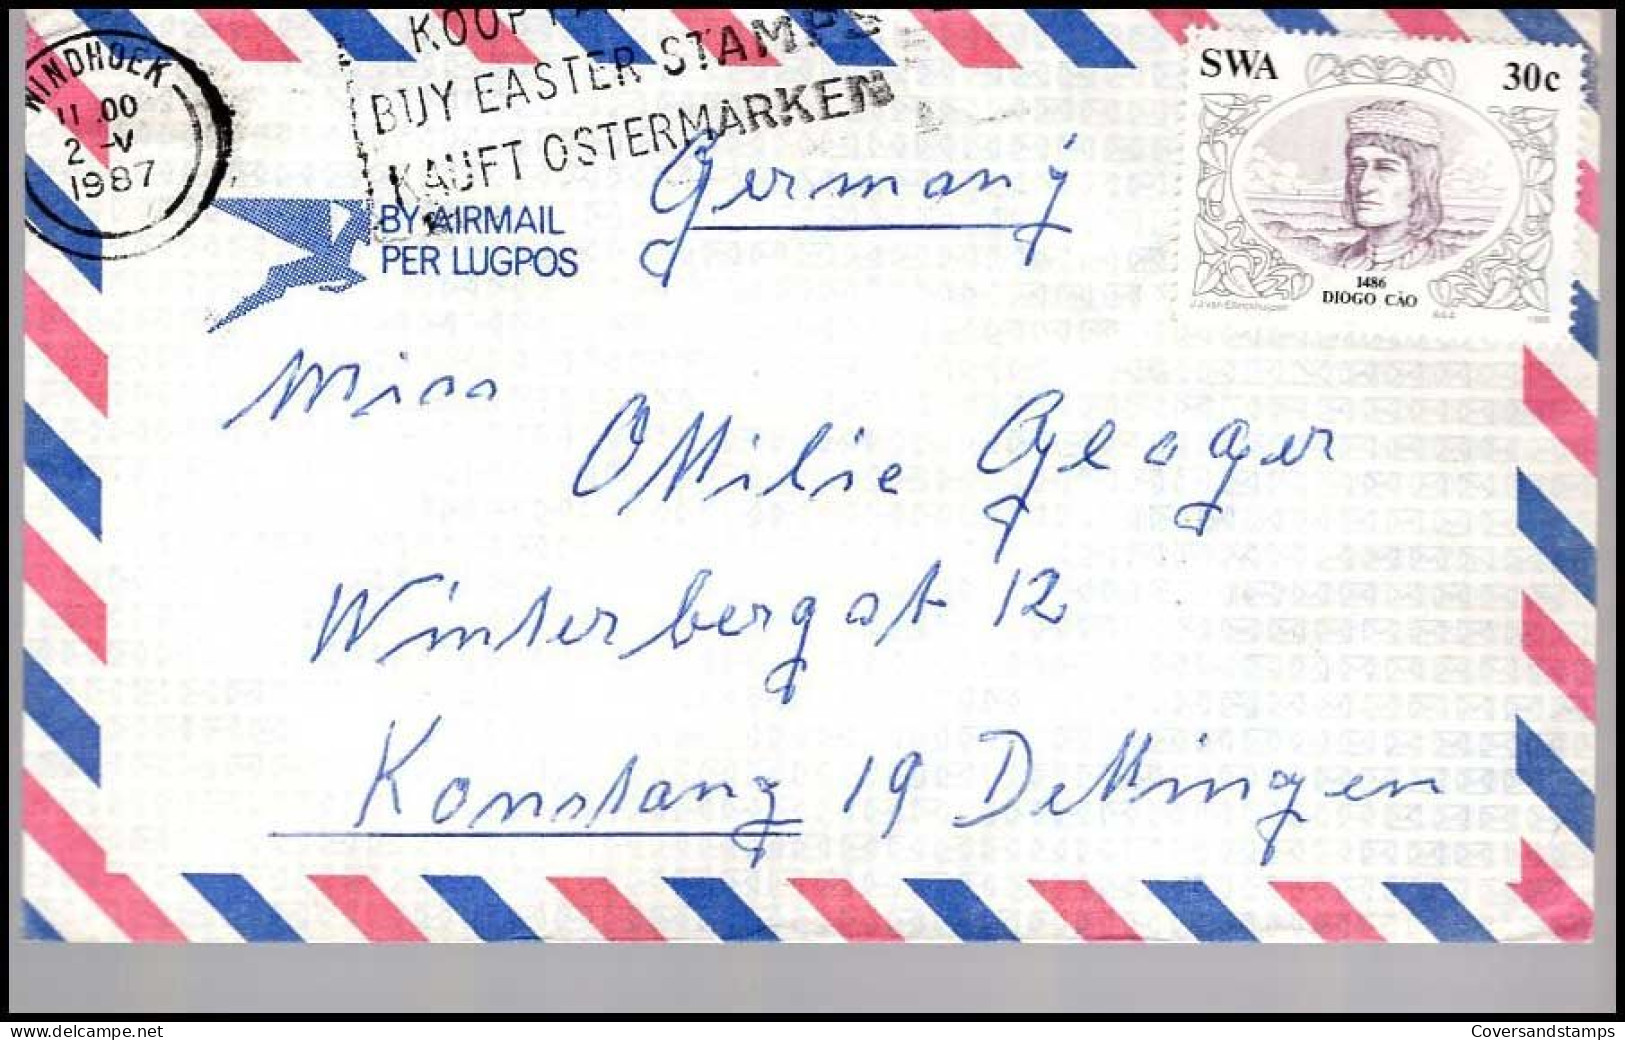 WINDHOEK
11.00
2-V
1987
BUY EASTER STAMPS
KAUFT OSTERMARKEN
BY AIRMAIL
PER LUGPOS
SWA 30c
1486
DIOGO CÃO
Germany
Miss
Ottilie Geoger
Winterbergst 12
Konstanz 19 Dettingen
delcampe.net/store/Coversandstamps